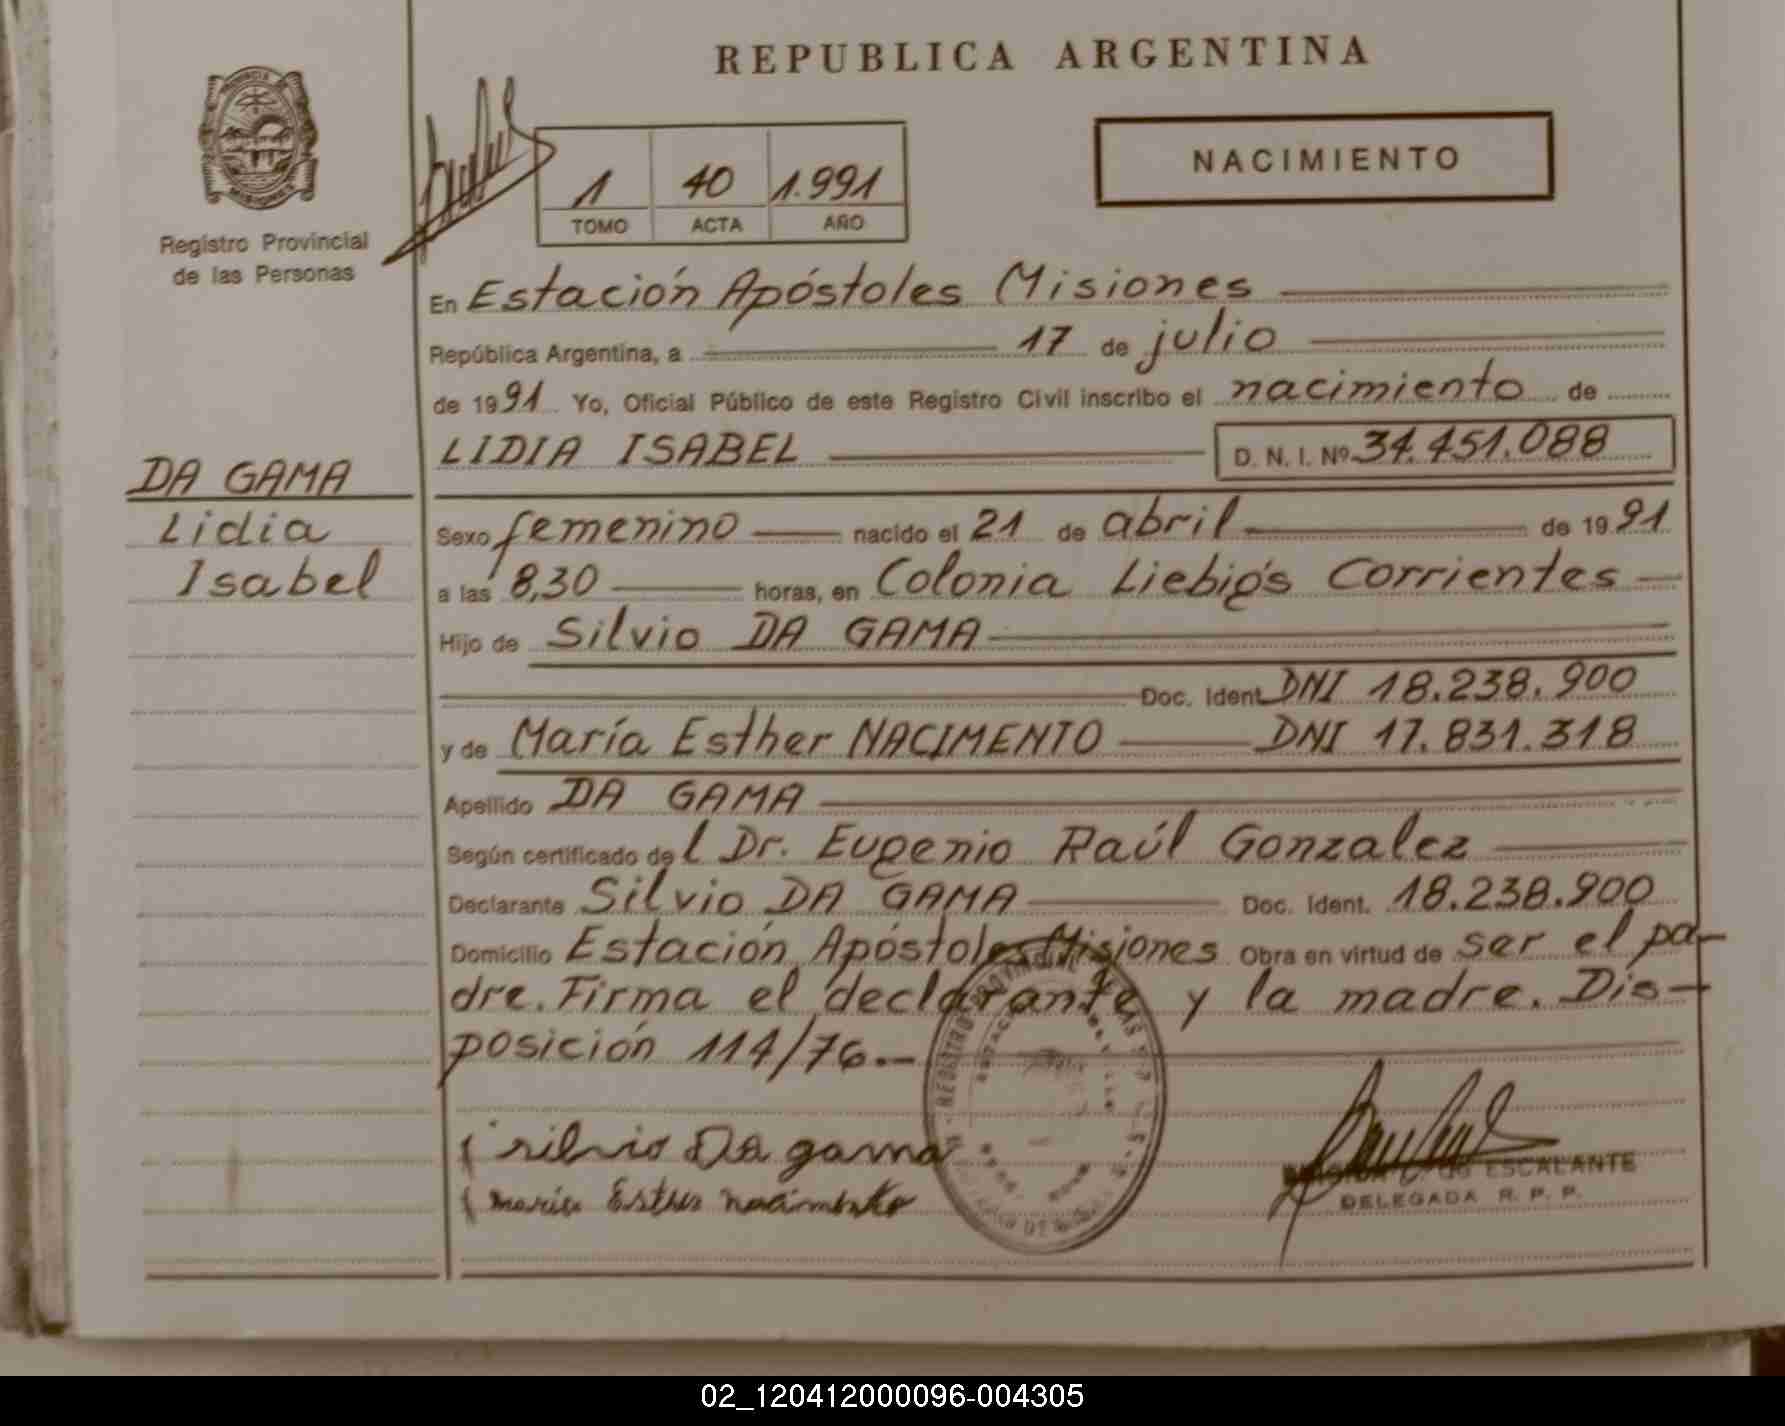 REPUBLICA ARGENTINA
NACIMIENTO
1 40 1.991
TOMO ACTA AÑO
Registro Provincial
de las Personas
En Estación Apóstoles Misiones
República Argentina, a 17 de julio
de 1991 Yo, Oficial Público de este Registro Civil inscribo el nacimiento de
LIDIA ISABEL D. N. I. Nº 34.451.088
DA GAMA
Lidia
Isabel
Sexo femenino nacido el 21 de abril de 1991
a las 8,30 horas, en Colonia Liebig's Corrientes
Hijo de Silvio DA GAMA
Doc. Ident. DNI 18.238.900
y de María Esther NACIMENTO DNI 17.831.318
Apellido DA GAMA
Según certificado del Dr. Eugenio Raúl Gonzalez
Declarante Silvio DA GAMA Doc. Ident. 18.238.900
Domicilio Estación Apóstoles Misiones Obra en virtud de ser el pa-
dre. Firma el declarante y la madre. Dis-
posición 114/76.-
silvio Da gama
maria Esther nacimento
ESCALANTE
DELEGADA R. P. P.
REGISTRO PROVINCIAL DE LAS
02_120412000096-004305